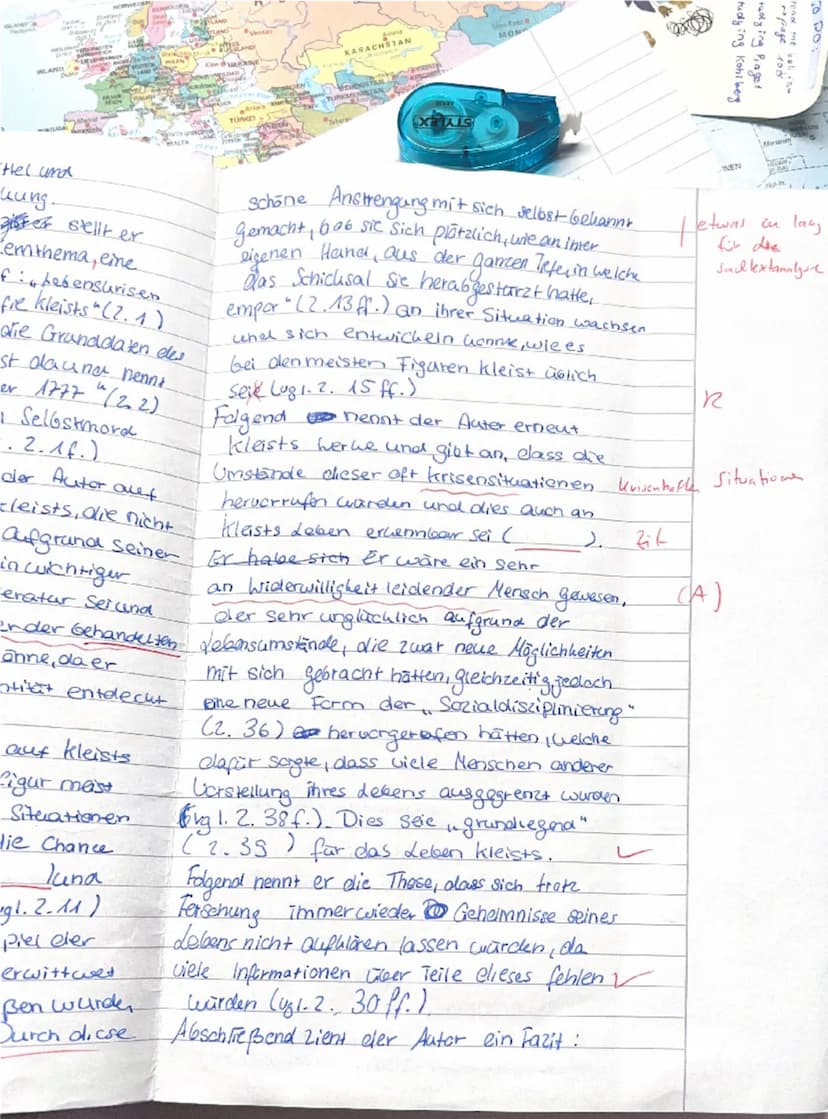 KASACHSTAN
TÜRKEI
IRLAND
STYLEX
TO DO:
Piaget
Kohlberg
tel und
kung.
stellt er
emthema, eine
f: „Lebenskrisen
fie Kleists" (Z. 1)
die Grunddaten des
st da und nennt
er 1777" (Z. 2)
Selbstmord
. Z. 1f.)
der Autor auf
kleists, die nicht
aufgrund seiner
in wichtiger
eratur sei und
n der behandelten
önne, da er
ntität entdeckt
auf Kleists
Figur meist
Situationen
die Chance
) und
gl. Z. 11)
piel der
erwittwet
ßen wurde,
Durch diese
schöne Anstrengung mit sich selbst bekannt
gemacht, hob sie sich plötzlich, wie an ihrer
eigenen Hand, aus der ganzen Tiefe, in welche
das Schicksal sie herabgestürzt hatte,
empor" (Z. 13 ff.) an ihrer Situation wachsen
und sich entwickeln könne, wie es
bei den meisten Figuren Kleist üblich
sei (vgl. Z. 15 ff.)
Folgend nennt der Autor erneut
Kleists Werke und gibt an, dass die
Umstände dieser oft Krisensituationen
hervorrufen würden und dies auch an
Kleists Leben erkennbar sei ( ).
Er habe sich Er wäre ein sehr
an Widerwilligkeit leidender Mensch gewesen,
der sehr unglücklich aufgrund der
Lebensumstände, die zwar neue Möglichkeiten
mit sich gebracht hätten, gleichzeitig jedoch
eine neue Form der „Sozialdisziplinierung"
(Z. 36) hervorgerufen hätten, welche
dafür sorgte, dass viele Menschen anderer
Vorstellung ihres Lebens ausgegrenzt wurden
(vgl. Z. 38 f.). Dies seie „grundlegend"
(Z. 39) für das Leben Kleists.
Folgend nennt er die These, dass sich trotz
Forschung immer wieder Geheimnisse seines
Lebens nicht aufklären lassen würden, da
viele Informationen über Teile dieses fehlen
würden (vgl. Z. 30 ff.).
Abschließend zieht der Autor ein Fazit:
etwas zu lang
für die
Sachtextanalyse
R
krisenhafte Situationen
Zit
(A)